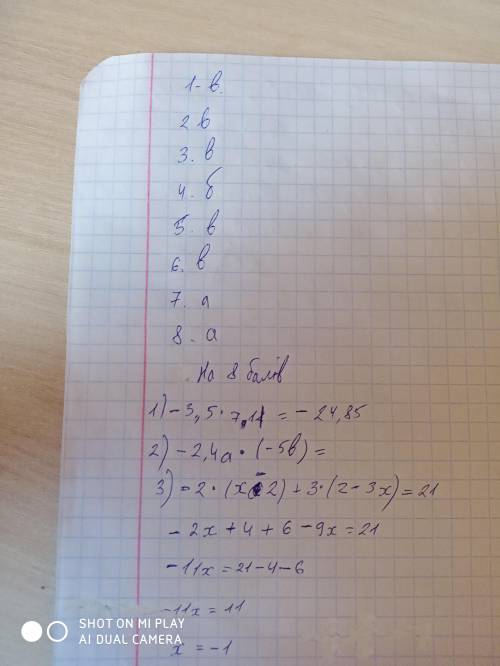 1-в.
2 в
3. в
4. б
5. в
6. в
7. а
8. а
На 8 балів
1) -3,5 · 7,1 = -24,85
2) -2,4а · (-5в) =
3) -2 · (х - 2) + 3 · (2 - 3х) = 21
-2х + 4 + 6 - 9х = 21
-11х = 21 - 4 - 6
-11х = 11
х = -1
SHOT ON MI PLAY
AI DUAL CAMERA